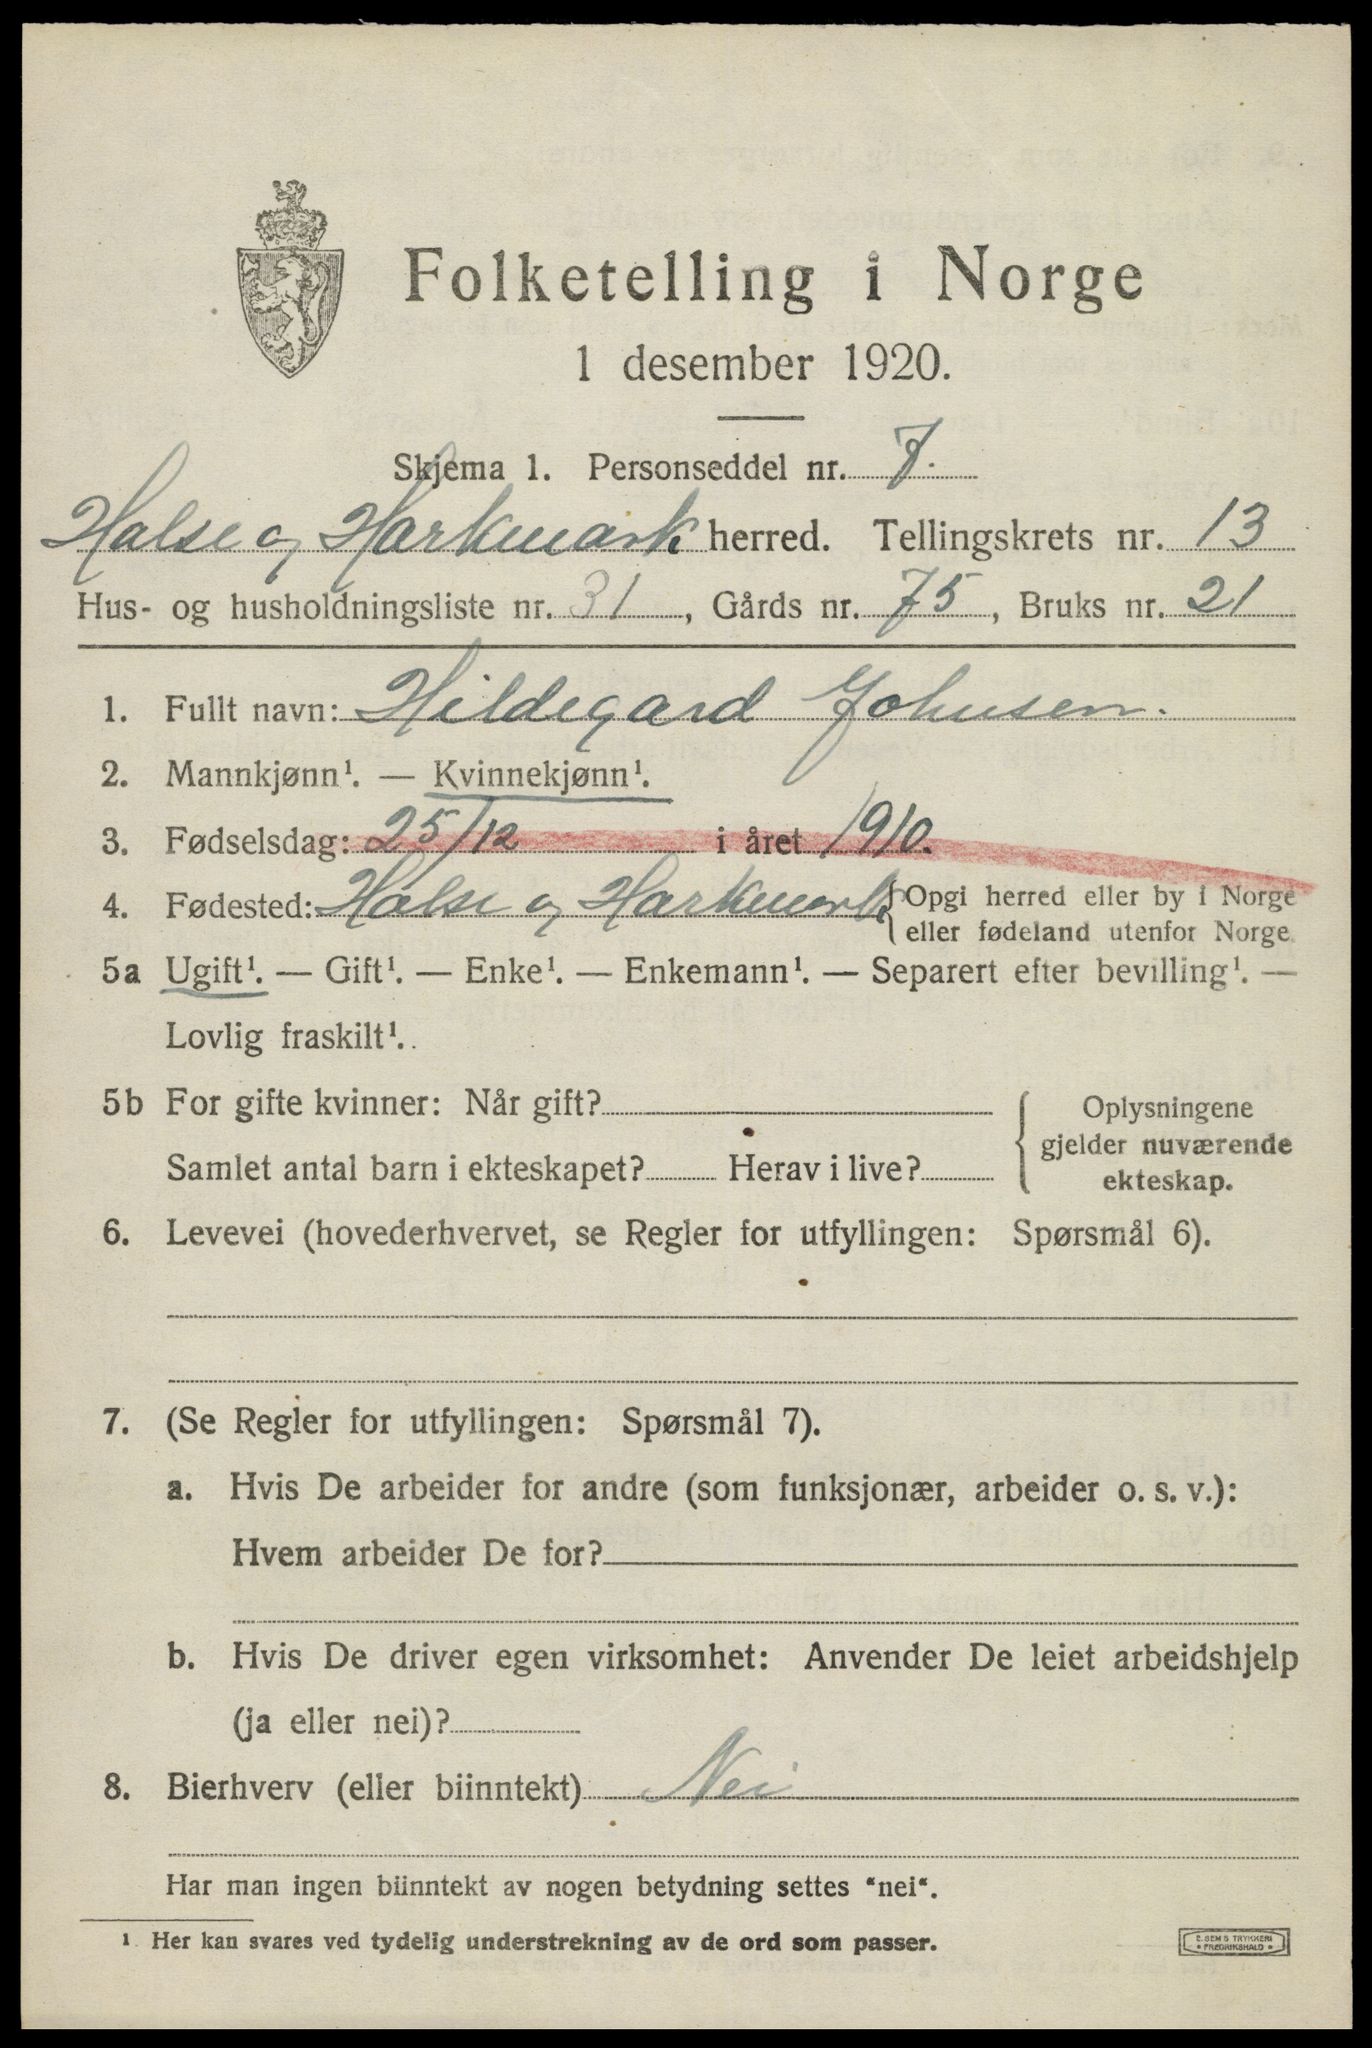 Folketelling i Norge
1 desember 1920.
Skjema 1. Personseddel nr. 7.
Halse og Harkmark herred. Tellingskrets nr. 13
Hus- og husholdningsliste nr. 31, Gårds nr. 75, Bruks nr. 21
1. Fullt navn: Hildegard Johnsen.
2. Mannkjønn¹. — Kvinnekjønn¹.
3. Fødselsdag: 25/12 i året 1910.
4. Fødested: Halse og Harkmark { Opgi herred eller by i Norge
eller fødeland utenfor Norge.
5a Ugift¹. — Gift¹. — Enke¹. — Enkemann¹. — Separert efter bevilling¹. —
Lovlig fraskilt¹.
5b For gifte kvinner: Når gift?
Samlet antal barn i ekteskapet? Herav i live?
{ Oplysningene
gjelder nuværende
ekteskap.
6. Levevei (hovederhvervet, se Regler for utfyllingen: Spørsmål 6).
7. (Se Regler for utfyllingen: Spørsmål 7).
a. Hvis De arbeider for andre (som funksjonær, arbeider o. s. v.):
Hvem arbeider De for?
b. Hvis De driver egen virksomhet: Anvender De leiet arbeidshjelp
(ja eller nei)?
8. Bierhverv (eller biinntekt) Nei
Har man ingen biinntekt av nogen betydning settes "nei".
¹ Her kan svares ved tydelig understrekning av de ord som passer.
E. SEM S TRYKKERI
* FREDRIKSHALD *